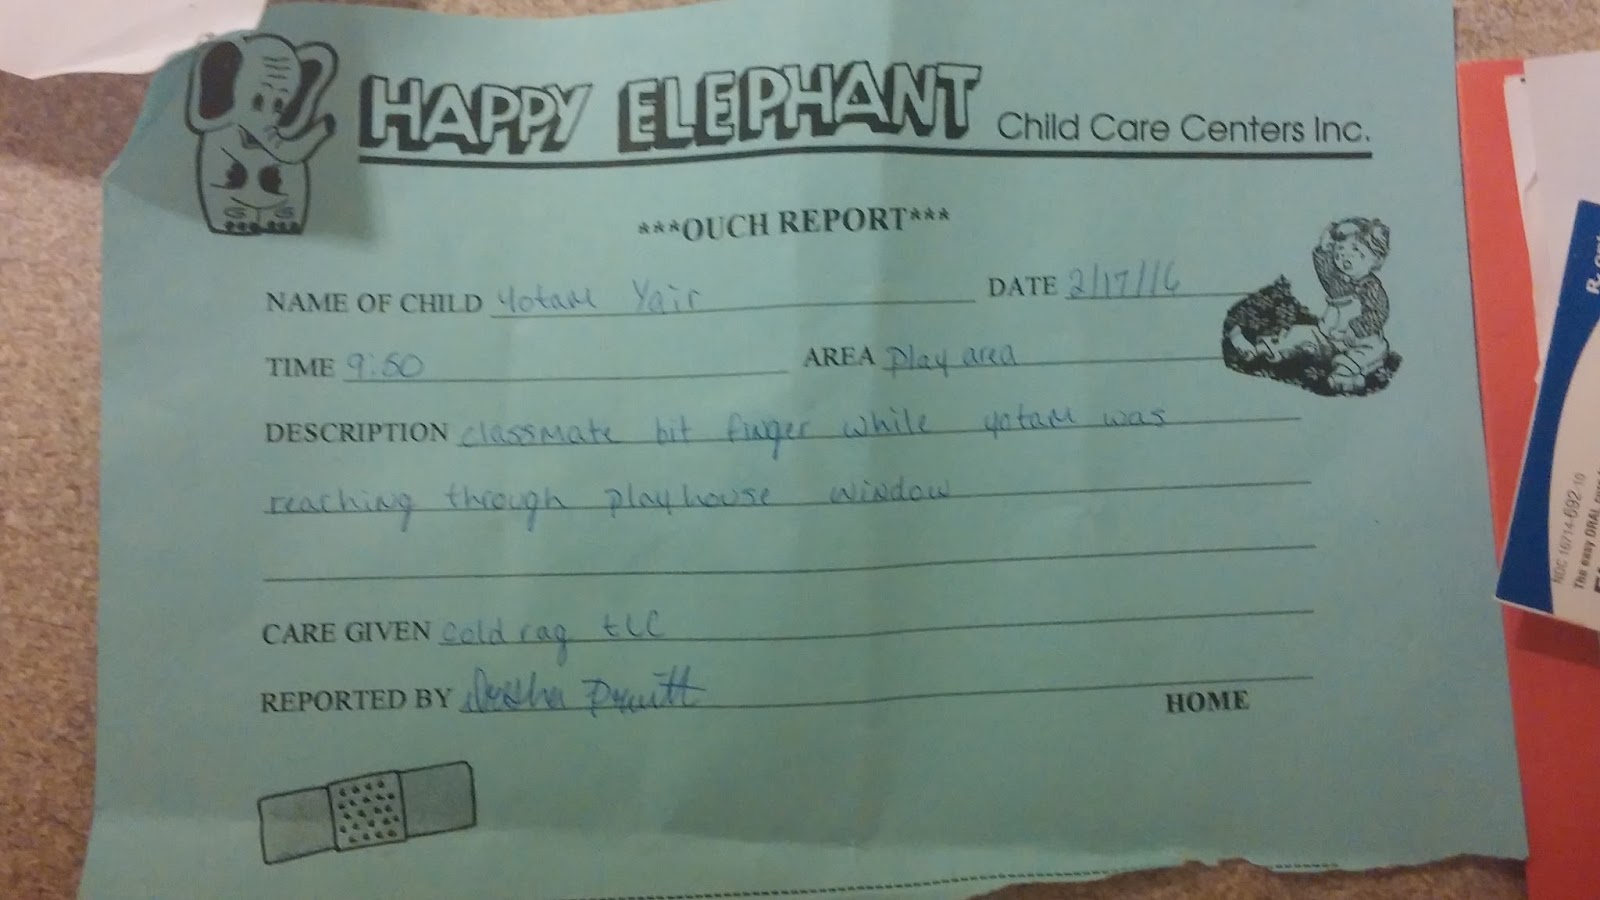 HAPPY ELEPHANT Child Care Centers Inc.
***OUCH REPORT***
NAME OF CHILD Yotam Yair DATE 2/17/16
TIME 9:50 AREA play area
DESCRIPTION classmate bit finger while yotam was
reaching through playhouse window
CARE GIVEN cold rag tLC
REPORTED BY Pruitt
HOME
NDC 16714-692-10
The easy ORAL